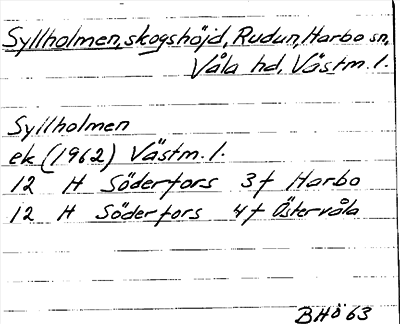 Syllholmen, skogshöjd, Rudun, Harbo sn,
Våla hd, Västm. l.
Syllholmen
ek (1962) Västm. l.
12 H Söderfors 3f Harbo
12 H Söderfors 4f Östervåla
BHö 63